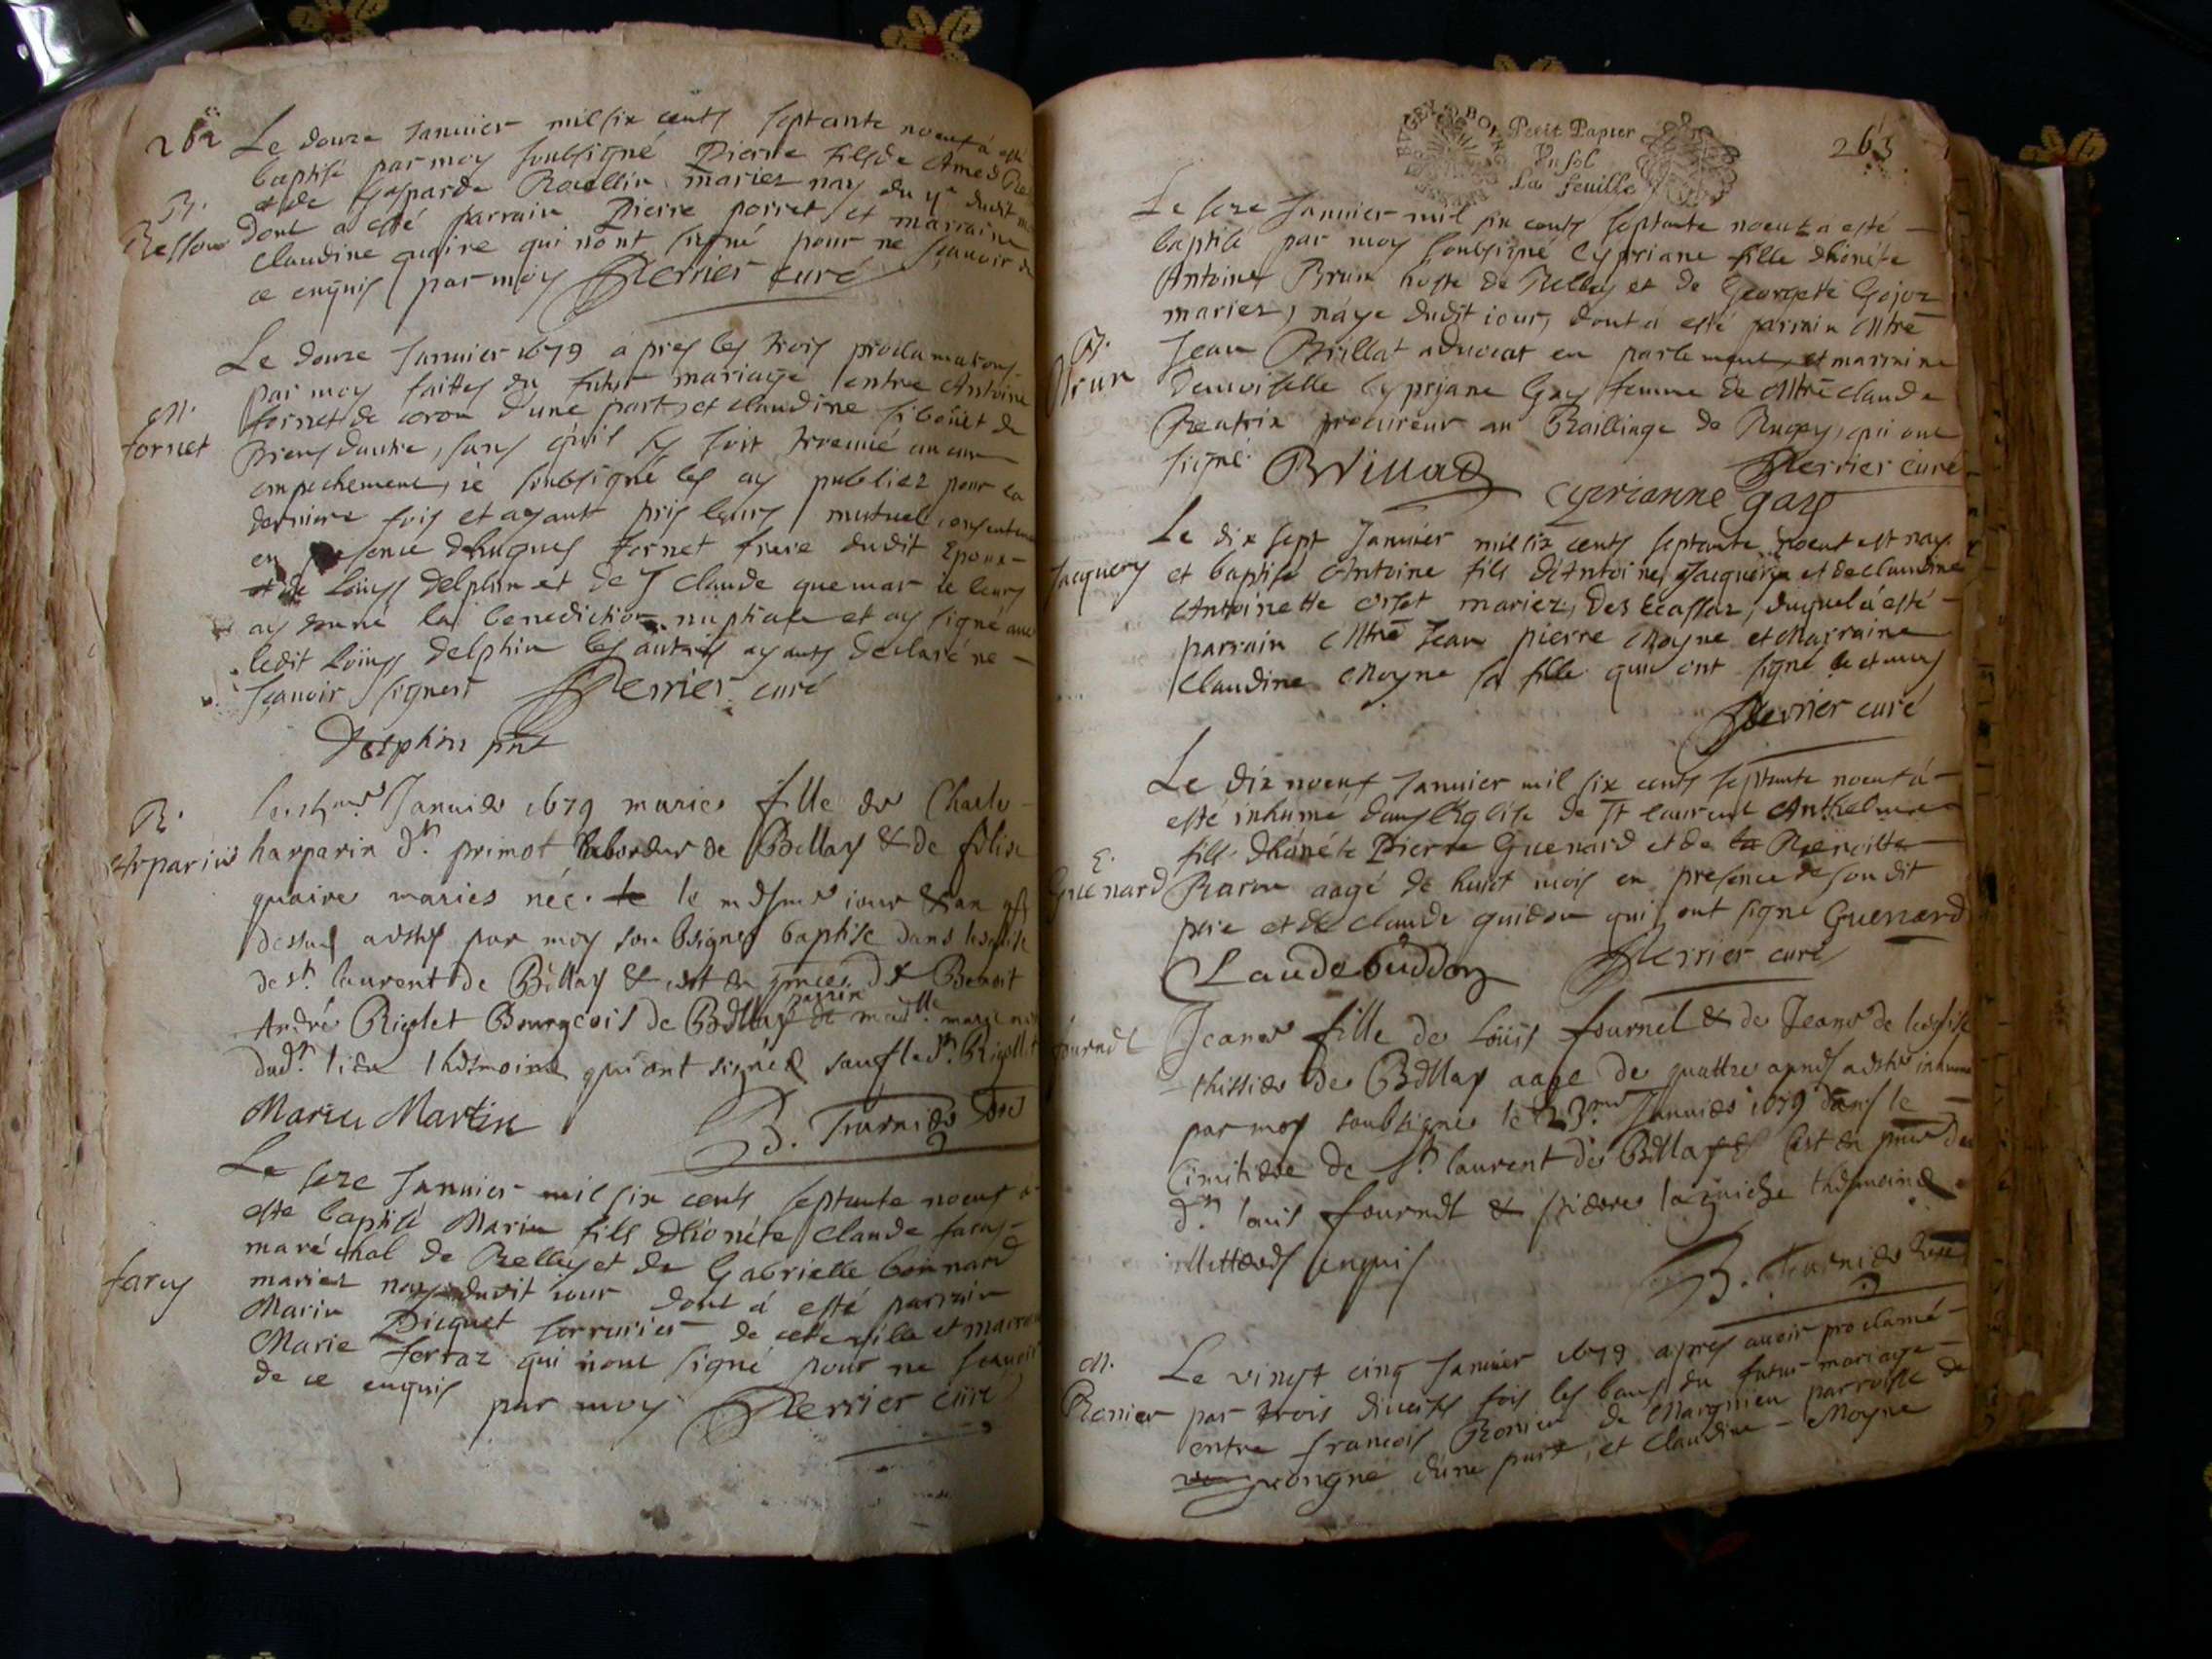 262
Le douze Januier mil six cents septante noeuf à esté
baptisé par moy soubsigné Pierre fils de Amed
et de Gasparde Rauellin mariez nay du dudit
B.
Ressou
dont a esté parrain Pierre porret et marraine
Claudine quaire qui nont signé pour ne scauoir de
ce enquis par moy Perrier curé
Le douze Januier 1679 apres les trois proclamations
par moy faittes du futur mariage entre Antoine
M.
fornet
fornet de coron d'une part, et claudine siboüet de
Briens dautre, sans qu'il sy soit trouué aucun
empechement, ie soubsigné les ay publiez pour la
derniere fois et ayant pris leurs mutuel consentement
en presence dhugues fornet frere dudit Epoux
et de Loüys delphin et de J claude quemar ie leurs
ay donné la benediction nuptiale et ay signé auec
ledit Loüys delphin les autres ayants declaré ne
scauoir signer Perrier curé
Delphin pnt
B.
harparin
Januier 1679 marie fille de Charle
harparin dt primot labordeur de Bellay & de felise
quaire maries née. le le mesme iour & an
dessus a esté par moy soubsigné baptise dans lesglise
de st laurent de Bellay & est de Benoit
André Rigolet Bourgeois de Bellay parrin & madlle
dudt lieu thesmoins qui ont signés sauf ledt Rigollet
Marie Martin B. Fournier
Le seze Januier mil six cents septante noeuf a
esté baptisé Marin fils dhonéte Claude faray
faray
maréchal de Belley et de Gabrielle bonnard
mariez nay dudit iour dont à esté parrain
Marin Picquet serrurier de cette ville et marraine
Marie ferraz qui n'ont signé pour ne scauoir
de ce enquis par moy Perrier curé
BVGEY BOVRG
Petit Papier
Vn sol
La feuille
263
Le seze Januier mil six cents septante noeuf a esté
baptisé par moy soubsigné Cypriane fille dhonéte
Antoine Brun hoste de Belley et de Georgette Gojoz
mariez, náye dudit iour, dont à esté parrain Mtre
B.
Brun
Jean Brillat aduocat en parlement, et marraine
Demoiselle Cypriane Gay femme de Mtre claude
Beatrix procureur au Bailliage de Bugey, qui ont
signé Brillat Perrier curé
cyprianne gay
Le dix sept Januier mil six cents septante noeuf est nay
Jacquery
et baptisé Antoine fils d'Antoine Jacquery et de claudine
Antoinette orset mariez, des Ecassaz, duquel à esté
parrain Mtre Jean pierre Moyne et Marraine
Claudine Moyne sa fille qui ont signé
Perrier curé
Le dix noeuf Januier mil six cents septante noeuf à
esté inhumé dans l'Eglise de St laurent Anthelme
E.
Guenard
fils dhonéte Pierre Guenard et de la Benoitte
Baron aagé de huict mois en presence de son dit
pere et de Claude guidon qui ont signe Guenard
Claude Guddon Perrier curé
fournel
Jeane fille de Loüis fournel & de Jeane de lesglise
thissier de Bellay aage de quattre a esté inhume
par moy soubsigné le 23me Januier 1679 dans le
Cimitiere de St laurent de Bellay & cest en pnce du
dt louis fournel & pierre laguiche thesmoins
illetterés enquis
B. Fournier
M.
Bonier
Le vingt cinq Januier 1679 apres auoir proclamé
par trois diuerses fois les bans du futur mariage
entre francois Bonier de Marignieu parroisse de
pongné d'une part, et Claudine Moyne